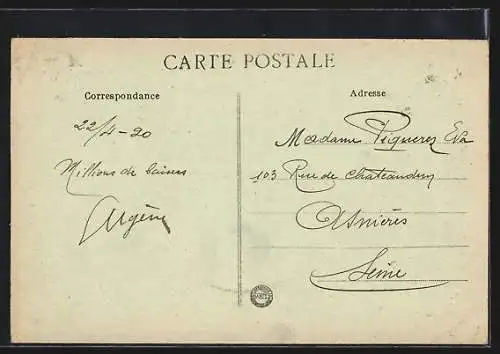 CARTE POSTALE
Correspondance
Adresse
22/4-20
Millions de baisers
Eugène
Madame Piquerez Eva
103 Rue de Chateaudun
Asnières
Seine